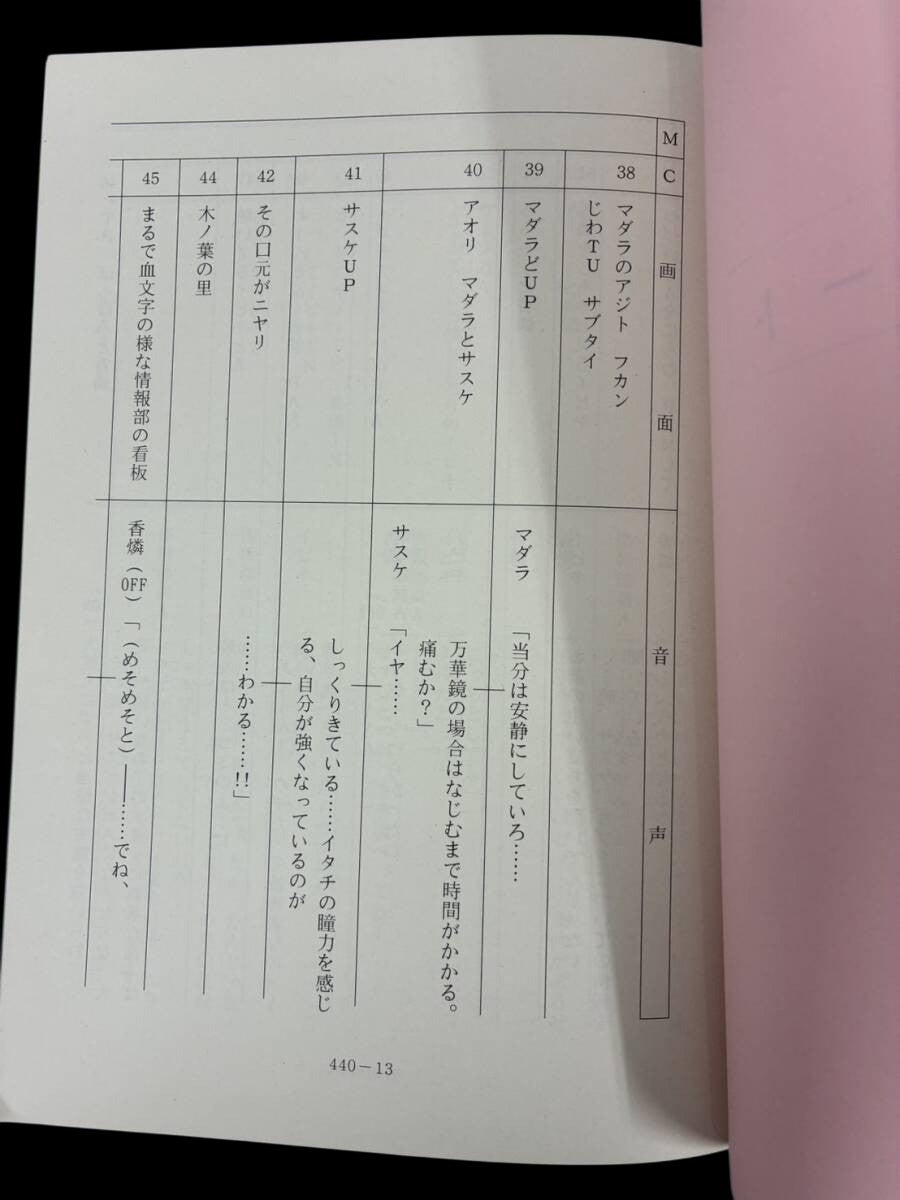 M
C
画面
音声
38
マダラのアジト　フカン
じわTU　サブタイ
39
マダラどUP
マダラ　「当分は安静にしていろ……
40
アオリ　マダラとサスケ
万華鏡の場合はなじむまで時間がかかる。
痛むか？」
サスケ　「イヤ……
41
サスケUP
しっくりきている……イタチの瞳力を感じ
る、自分が強くなっているのが
42
その口元がニヤリ
……わかる……!!」
44
木ノ葉の里
45
まるで血文字の様な情報部の看板
香燐（OFF）「（めそめそと）――……でね、
440－13